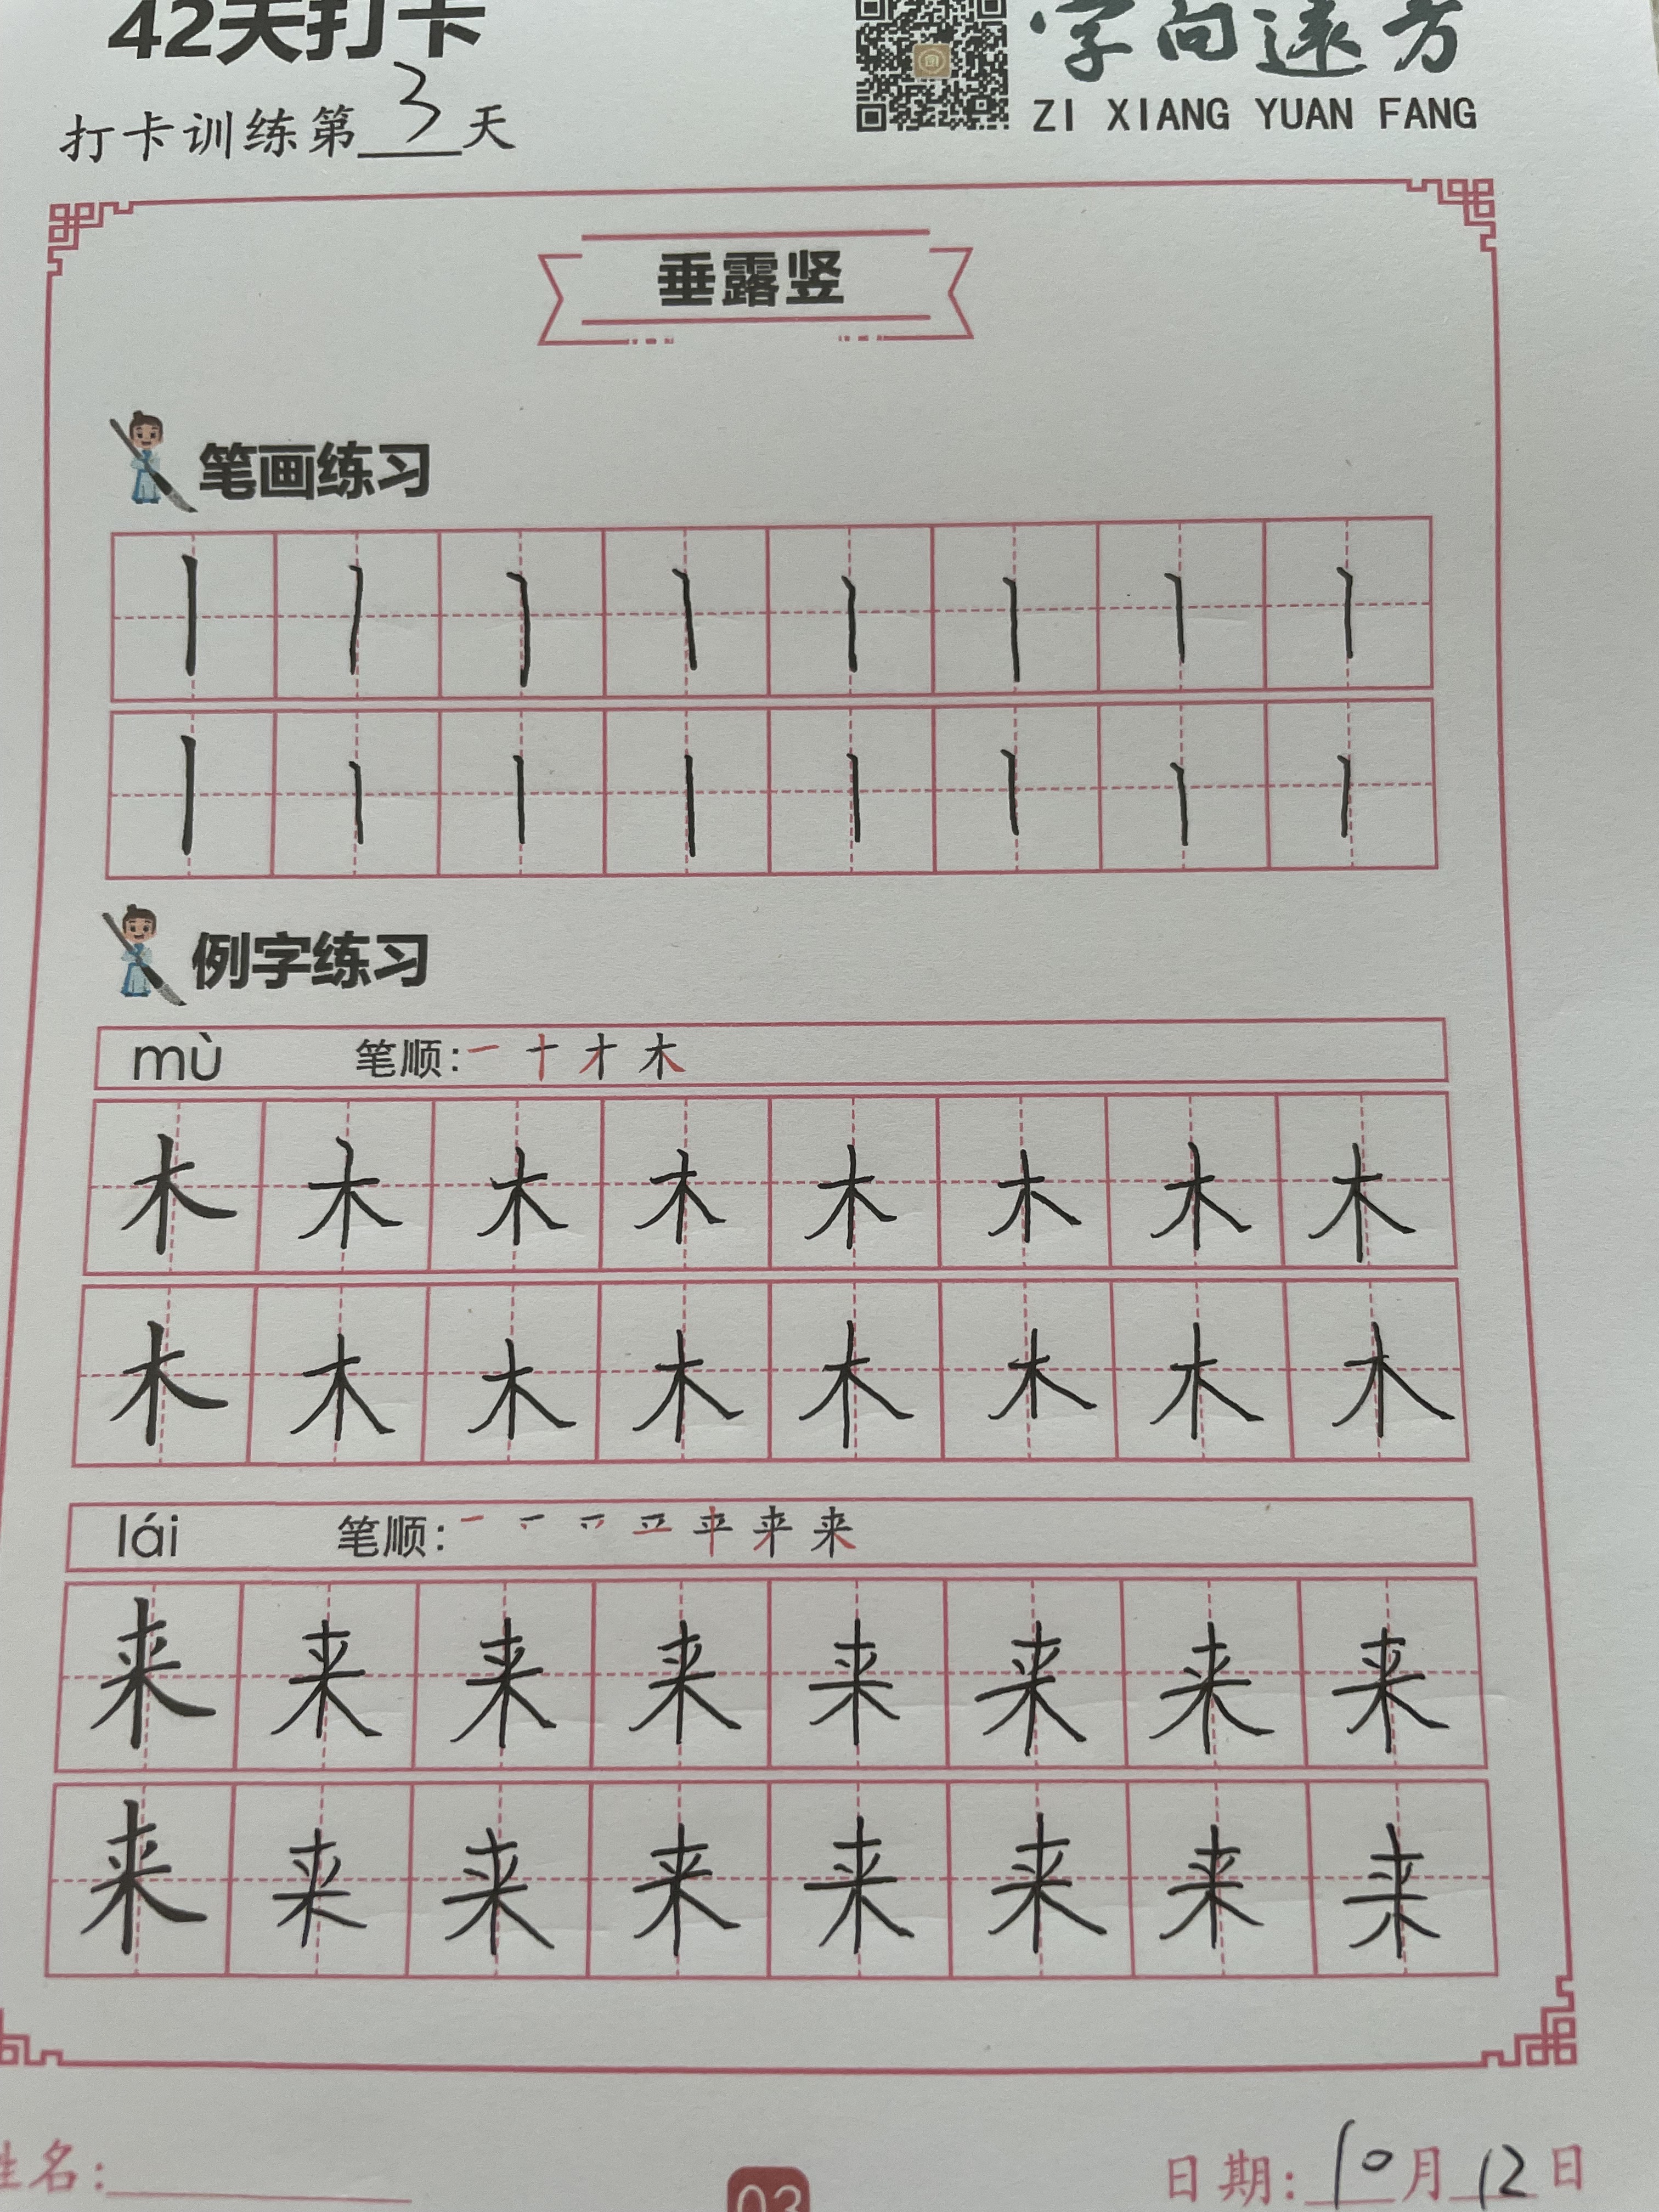 42天打卡
字向远方
打卡训练第3天
ZI XIANG YUAN FANG
垂露竖
笔画练习
丨丨丨丨丨丨丨丨
丨丨丨丨丨丨丨丨
例字练习
mù 笔顺: 一 十 才 木
木木木木木木木木
木木木木木木木木
lái 笔顺: 来
来来来来来来来来
来来来来来来来来
姓名:
03
日期: 10月12日